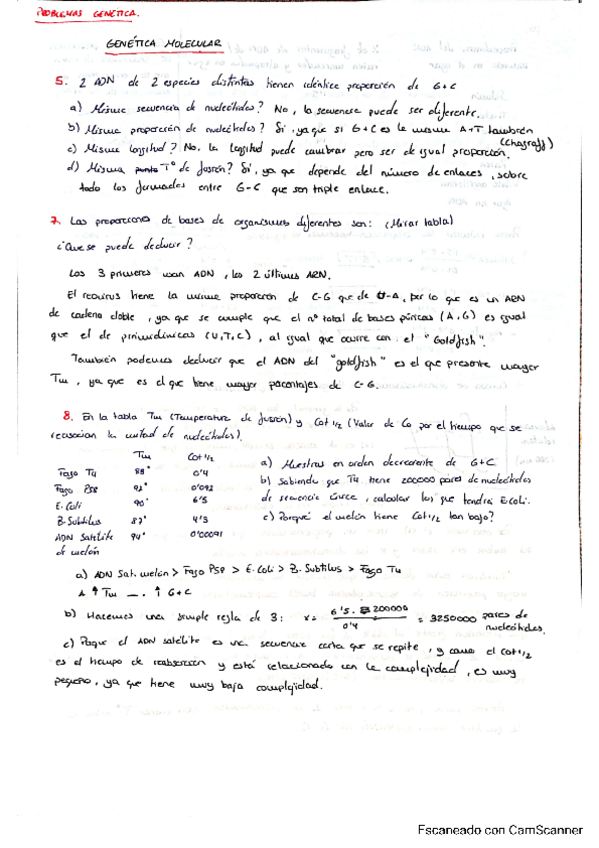 PROBLEMAS GENÉTICA.
GENÉTICA MOLECULAR
5. 2 ADN de 2 especies distintas tienen idéntica proporción de G+C
a) Misma secuencia de nucleótidos? No, la secuencia puede ser diferente.
b) Misma proporción de nucleótidos? Sí, ya que si G+C es la misma A+T también
(Chagraff)
c) Misma longitud? No, la longitud puede cambiar pero ser de igual proporción.
d) Misma punto Tº de fusión? Sí, ya que depende del número de enlaces, sobre
todo los formados entre G-C que son triple enlace.
7. Las proporciones de bases de organismos diferentes son: (Mirar tabla)
¿Que se puede deducir?
Los 3 primeros usan ADN, los 2 últimos ARN.
El reovirus tiene la misma proporción de C-G que de U-A, por lo que es un ARN
de cadena doble, ya que se cumple que el nº total de bases púricas (A,G) es igual
que el de pirimidínicas (U,T,C), al igual que ocurre con el "Goldfish".
También podemos deducir que el ADN del "goldfish" es el que presenta mayor
Tm, ya que es el que tiene mayor porcentajes de C-G.
8. En la tabla Tm (Temperatura de fusión) y Cot 1/2 (Valor de Co por el tiempo que se
reasocian la mitad de nucleótidos).
Tm Cot 1/2
Fago T4 88º 0'4
Fago PSP 92º 0'092
E. Coli 90º 6'5
B. Subtilus 87º 4'3
ADN Satélite 94º 0'00091
de melón
a) Muestras en orden decreciente de G+C
b) Sabiendo que T4 tiene 200000 pares de nucleótidos
de secuencia única, calcular los que tendrá E.Coli.
c) Porqué el melón tiene Cot 1/2 tan bajo?
a) ADN Sat. melón > Fago PSP > E. Coli > B. Subtilus > Fago T4
A ↑ Tm _. ↑ G+C
b) Hacemos una simple regla de 3: x = 6'5 · 200000 / 0'4 = 3250000 pares de
nucleótidos.
c) Porque el ADN satélite es una secuencia corta que se repite, y como el Cot 1/2
es el tiempo de y está relacionado con la complejidad, es muy
pequeño, ya que tiene muy baja complejidad.
Escaneado con CamScanner